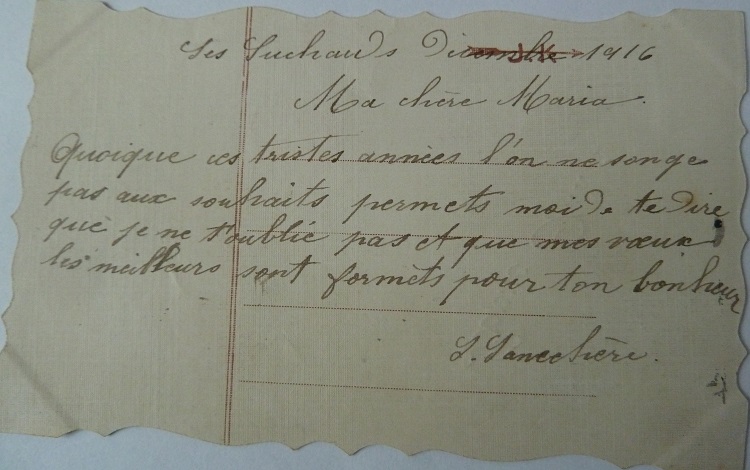 Les Suchauds Décembre 1916
Ma chère Maria.
Quoique ces tristes années l'on ne songe
pas aux souhaits permets moi de te dire
que je ne t'oublie pas et que mes vœux
les meilleurs sont formets pour ton bonheur